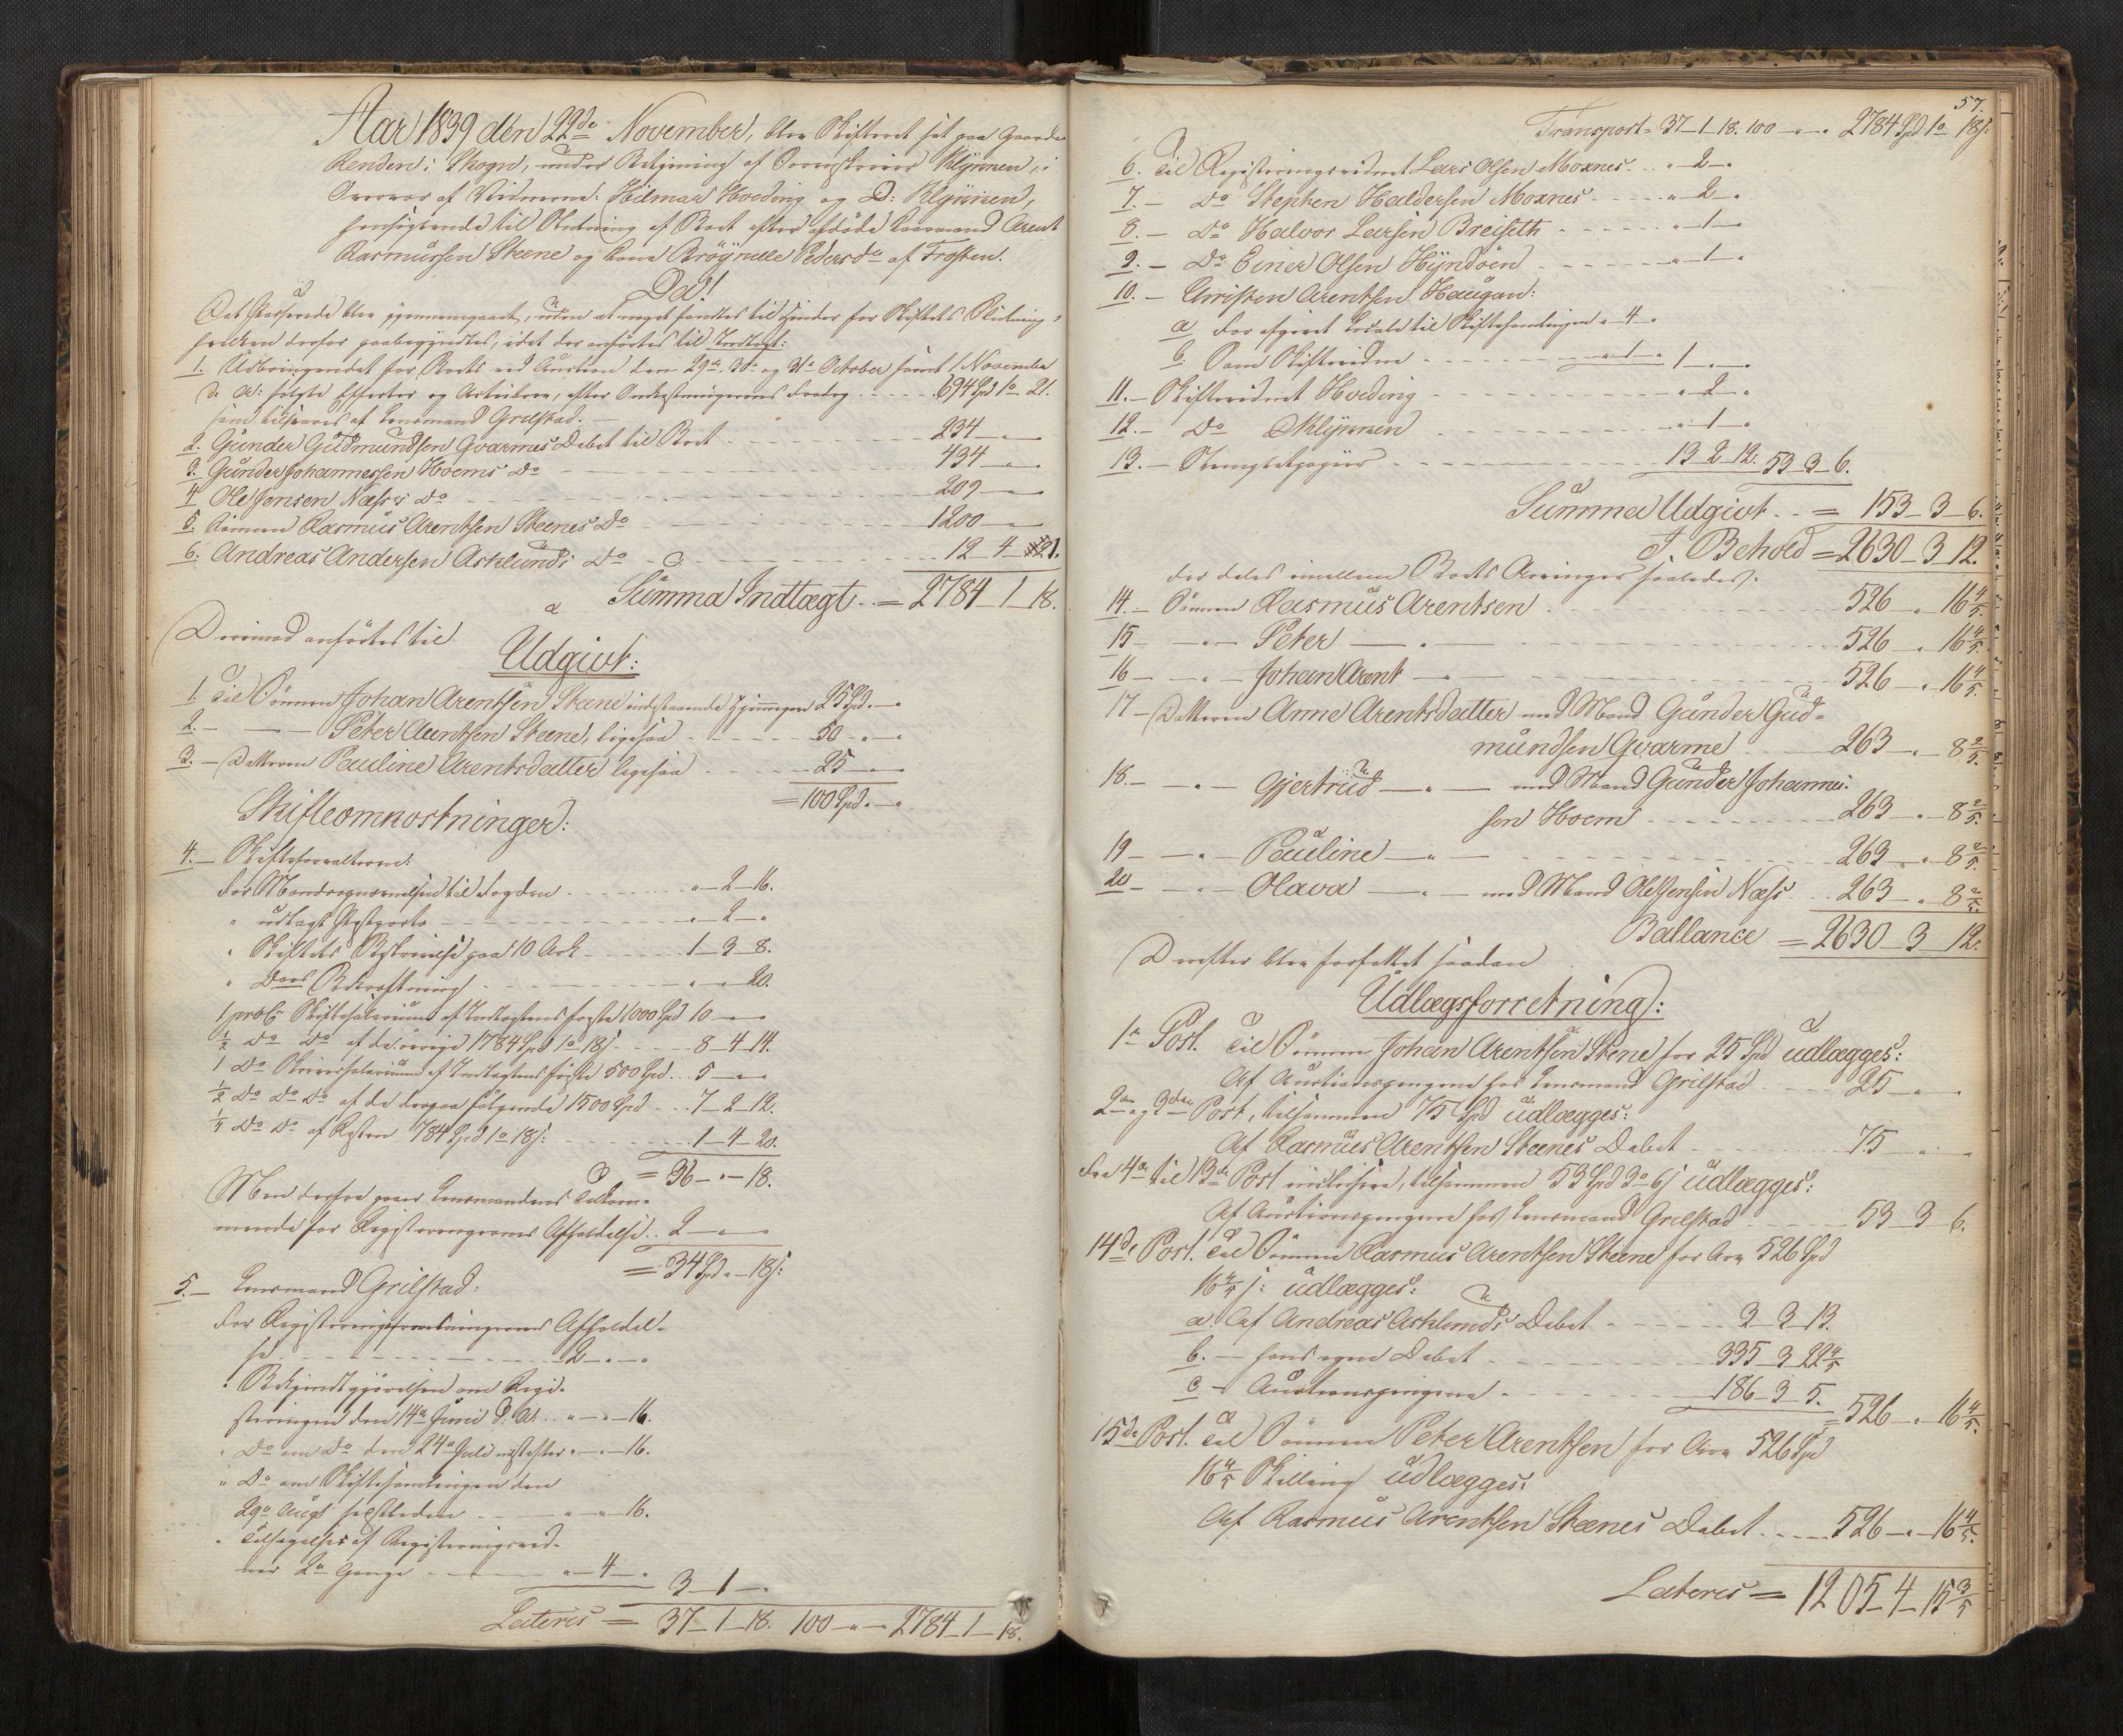 Aar 1839 den 22de November, blev Skifteret sat paa Gaarden
Renden i Skogn, under Betjening af Sorenskriver Klÿwen, i
Overvær af Vidnerne: Hilmar Hveding og D: Klÿwen,
hensigtende til Slutning af Boet efter afdøde Kaarmand Arent
Rasmussen Steene og Kone Brÿnille Pedersdr af Frosten.
Da!
Det Passerede blev gjennemgaaet, uden at noget fandtes til Hinder for Skiftets Slutning,
hvilken derfor paabegyndtes, idet der anførtes til Indtægt:
1. Udbringendet for Boets ved Auction den 29de, 30te og 31te October samt 1 November
d: A: solgte Effecter og Activer, efter Omkostningernes Fradrag 694 Spd 1o 21.
som tilsvares af Lensmand Grilstad.
2. Gunder Gudmundsen Gvarmes Debet til Boet 234 " "
3. Gunder Johannessen Hoems Do 434 " "
4 Ole Jensen Næss's Do 209 " "
5. Sønnen Rasmus Arentsen Steenes Do 1200 " "
6. Andreas Andersen Asklunds Do 12 4 21.
Summa Indtægt = 2784 1 18.
Derimod anførtes til
Udgivt:
1. Til Sønnen Johan Arentsen Steene indestaaende 25 Spd. "
2. — — Peter Arentsen Steene, ligesaa 50 " "
3. — Datteren Pauline Arentsdatter ligesaa 25 " "
= 100 Spd. "
Skifteomkostninger:
4. — Skifteforvalteren:
For til Fogden " 2 16.
" udlagt Postporto " 2 "
" Skiftets Beskrivelse paa 10 Ark 1 3 8.
" Dens Bekræftning " " 20.
1 proCt Skiftesalarium af Indtægtens første 1000 Spd 10 " "
½ Do Do af de øvrige 1784 Spd 1o 18 s 8 4 14.
1 Do Skriversalarium af Indtægtens første 500 Spd 5 " "
½ Do Do Do af de derpaa følgende 1500 Spd 7 2 12.
¼ Do Do af Resten 784 Spd 1o 18 s: 1 4 20.
= 36 " 18.
Men derfra gaaer Lensmandens Tilkom-
mende for Registreringernes Afholdelse 2 " "
= 34 Spd " 18 s:
5. — Lensmand Grilstad:
For Registreringsforretningernes Afholdel-
se 2 " "
" Bekjendtgjørelsen om Regi-
streringen den 14de Juni d: A: " " 16.
" Do om Do den 24de Juli næstefter " " 16.
" Do om Skiftesamlingen den
29de Augt sidstleden " " 16.
" Tilsigelser af Registreringsvid-
ner 2de Gange " 4 " 3 1 "
Lateris = 37 1 18. 100 " " 2784 1 18.
57.
Transport = 37 1 18. 100 " " 2784 Spd 1o 18 s:
6. Til Registreringsvidnet Lars Olsen Moxnes " 2 "
7. — Do Stephen Haldersen Moxnes " 2 "
8. — Do Halvor Larsen Breiseth " 1 "
9. — Do Einer Olsen Hÿndøen " 1 "
10. — Christen Arentsen Haugan:
a for afgivet Locale til Skiftesamlingen " 4 "
b. Som Skiftevidne " 1 " 1 " "
11. — Skiftevidnet Hveding " 2 "
12. — Do Klÿwen " 1 "
13. — Stempletpapiir 13 2 12. 53 3 6.
Summa Udgivt = 153 3 6.
I Behold = 2630 3 12.
der deles imellem Boets Arvinger saaledes:
14. — Sønnen Rasmus Arentsen 526 " 16⅘
15 — " — Peter — " — 526 " 16⅘
16 — " — Johan Arent — " — 526 " 16⅘
17 — Datteren Anne Arentsdatter med Mand Gunder Gud-
mundsen Gvarme 263 " 8⅖
18. — " — Gjertrud — " — med Mand Gunder Johannes-
sen Hoem 263 " 8⅖
19 — " — Pauline — " — 263 " 8⅖
20 — " — Olava — " — med Mand Ole Jensen Næss 263 " 8⅖
Ballance = 2630 3 12.
Derefter blev forfattet saadan
Udlægsforretning:
1te Post. Til Sønnen Johan Arentsen Steene for 25 Spd udlægges:
Af Auctionspengene hos Lensmand Grilstad 25 " "
2den og 3die Post, tilsammen 75 Spd udlægges:
Af Rasmus Arentsen Steenes Debet 75 " "
Fra 4de til 13de Post inclusive, tilsammen 53 Spd 3o 6 s udlægges:
Af Auctionspengene hos Lensmand Grilstad 53 3 6.
14de Post. Til Sønnen Rasmus Arentsen Steene for Arv 526 Spd
16⅘ s: udlægges:
a Af Andreas Asklunds Debet 3 3 13.
b. — hans egen Debet 335 3 22⅘
c — Auctionspengene 186 3 5. = 526 " 16⅘
15de Post. Til Sønnen Peter Arentsen for Arv 526 Spd
16⅘ Skilling udlægges:
Af Rasmus Arentsen Steenes Debet 526 " 16⅘
Lateris = 1205 4 15⅗